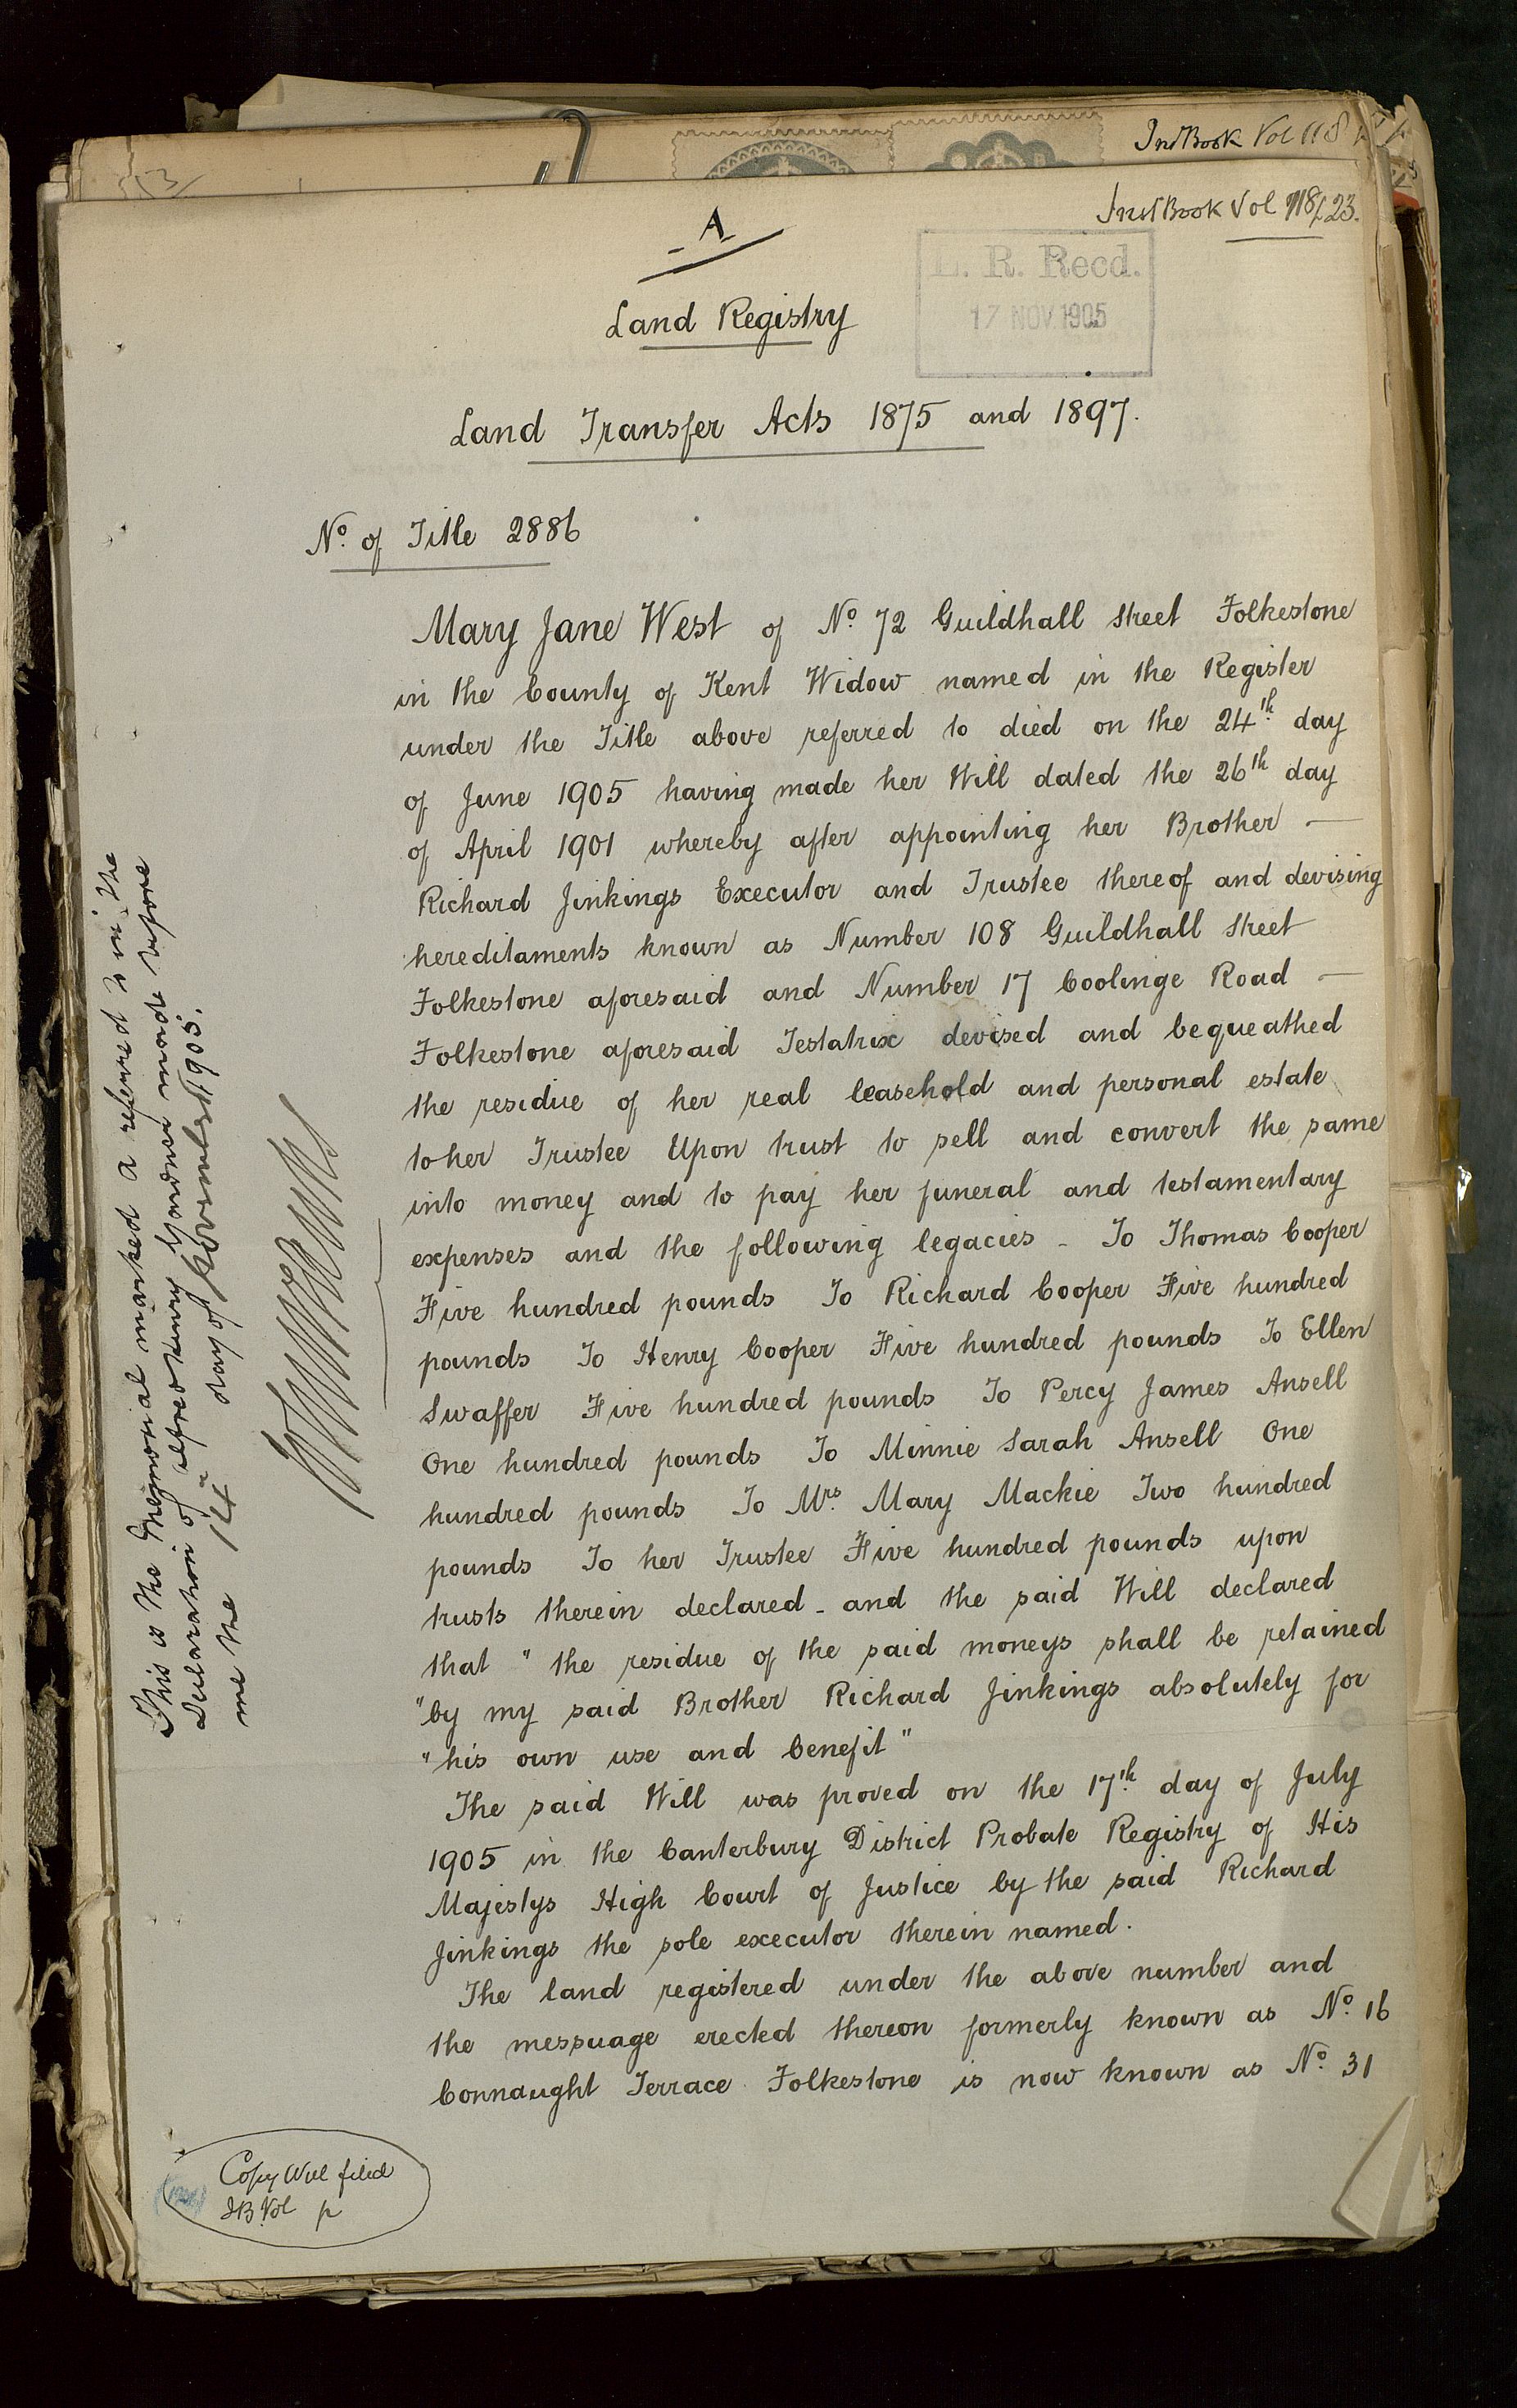 InstBook Vol 118
InstBook Vol 118/23.
A
L. R. Recd.
17 NOV. 1905
Land Registry
Land Transfer Acts 1875 and 1897.
No. of Title 2886
Mary Jane West of No. 72 Guildhall Street Folkestone
in the County of Kent Widow named in the Register
under the Title above referred to died on the 24th day
of June 1905 having made her Will dated the 26th day
of April 1901 whereby after appointing her Brother —
Richard Jinkings Executor and Trustee thereof and devising
hereditaments known as Number 108 Guildhall Street
Folkestone aforesaid and Number 17 Coolinge Road —
Folkestone aforesaid Testatrix devised and bequeathed
the residue of her real leasehold and personal estate
to her Trustee Upon trust to sell and convert the same
into money and to pay her funeral and testamentary
expenses and the following legacies - To Thomas Cooper
Five hundred pounds To Richard Cooper Five hundred
pounds To Henry Cooper Five hundred pounds To Ellen
Swaffer Five hundred pounds To Percy James Ansell
One hundred pounds To Minnie Sarah Ansell One
hundred pounds To Mrs. Mary Mackie Two hundred
pounds To her Trustee Five hundred pounds upon
trusts therein declared - and the said Will declared
that " the residue of the said moneys shall be retained
"by my said Brother Richard Jinkings absolutely for
"his own use and benefit"
The said Will was proved on the 17th day of July
1905 in the Canterbury District Probate Registry of His
Majestys High Court of Justice by the said Richard
Jinkings the sole executor therein named.
The land registered under the above number and
the messuage erected thereon formerly known as No. 16
Connaught Terrace Folkestone is now known as No. 31
This is the Memorial marked A referred to in the
Declaration of Alfred Henry Gardner made before
me the 14th day of November 1905.
Copy Will filed
IB Vol p